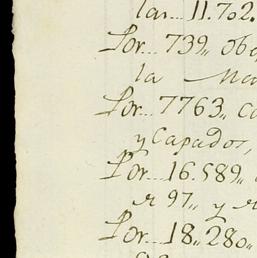 las... 11.702.
Por... 739,, obe
la Ma
Por... 7763,, ca
y Capados,
Por... 16.589,,
r 97,, y r
Por... 18,,280,,